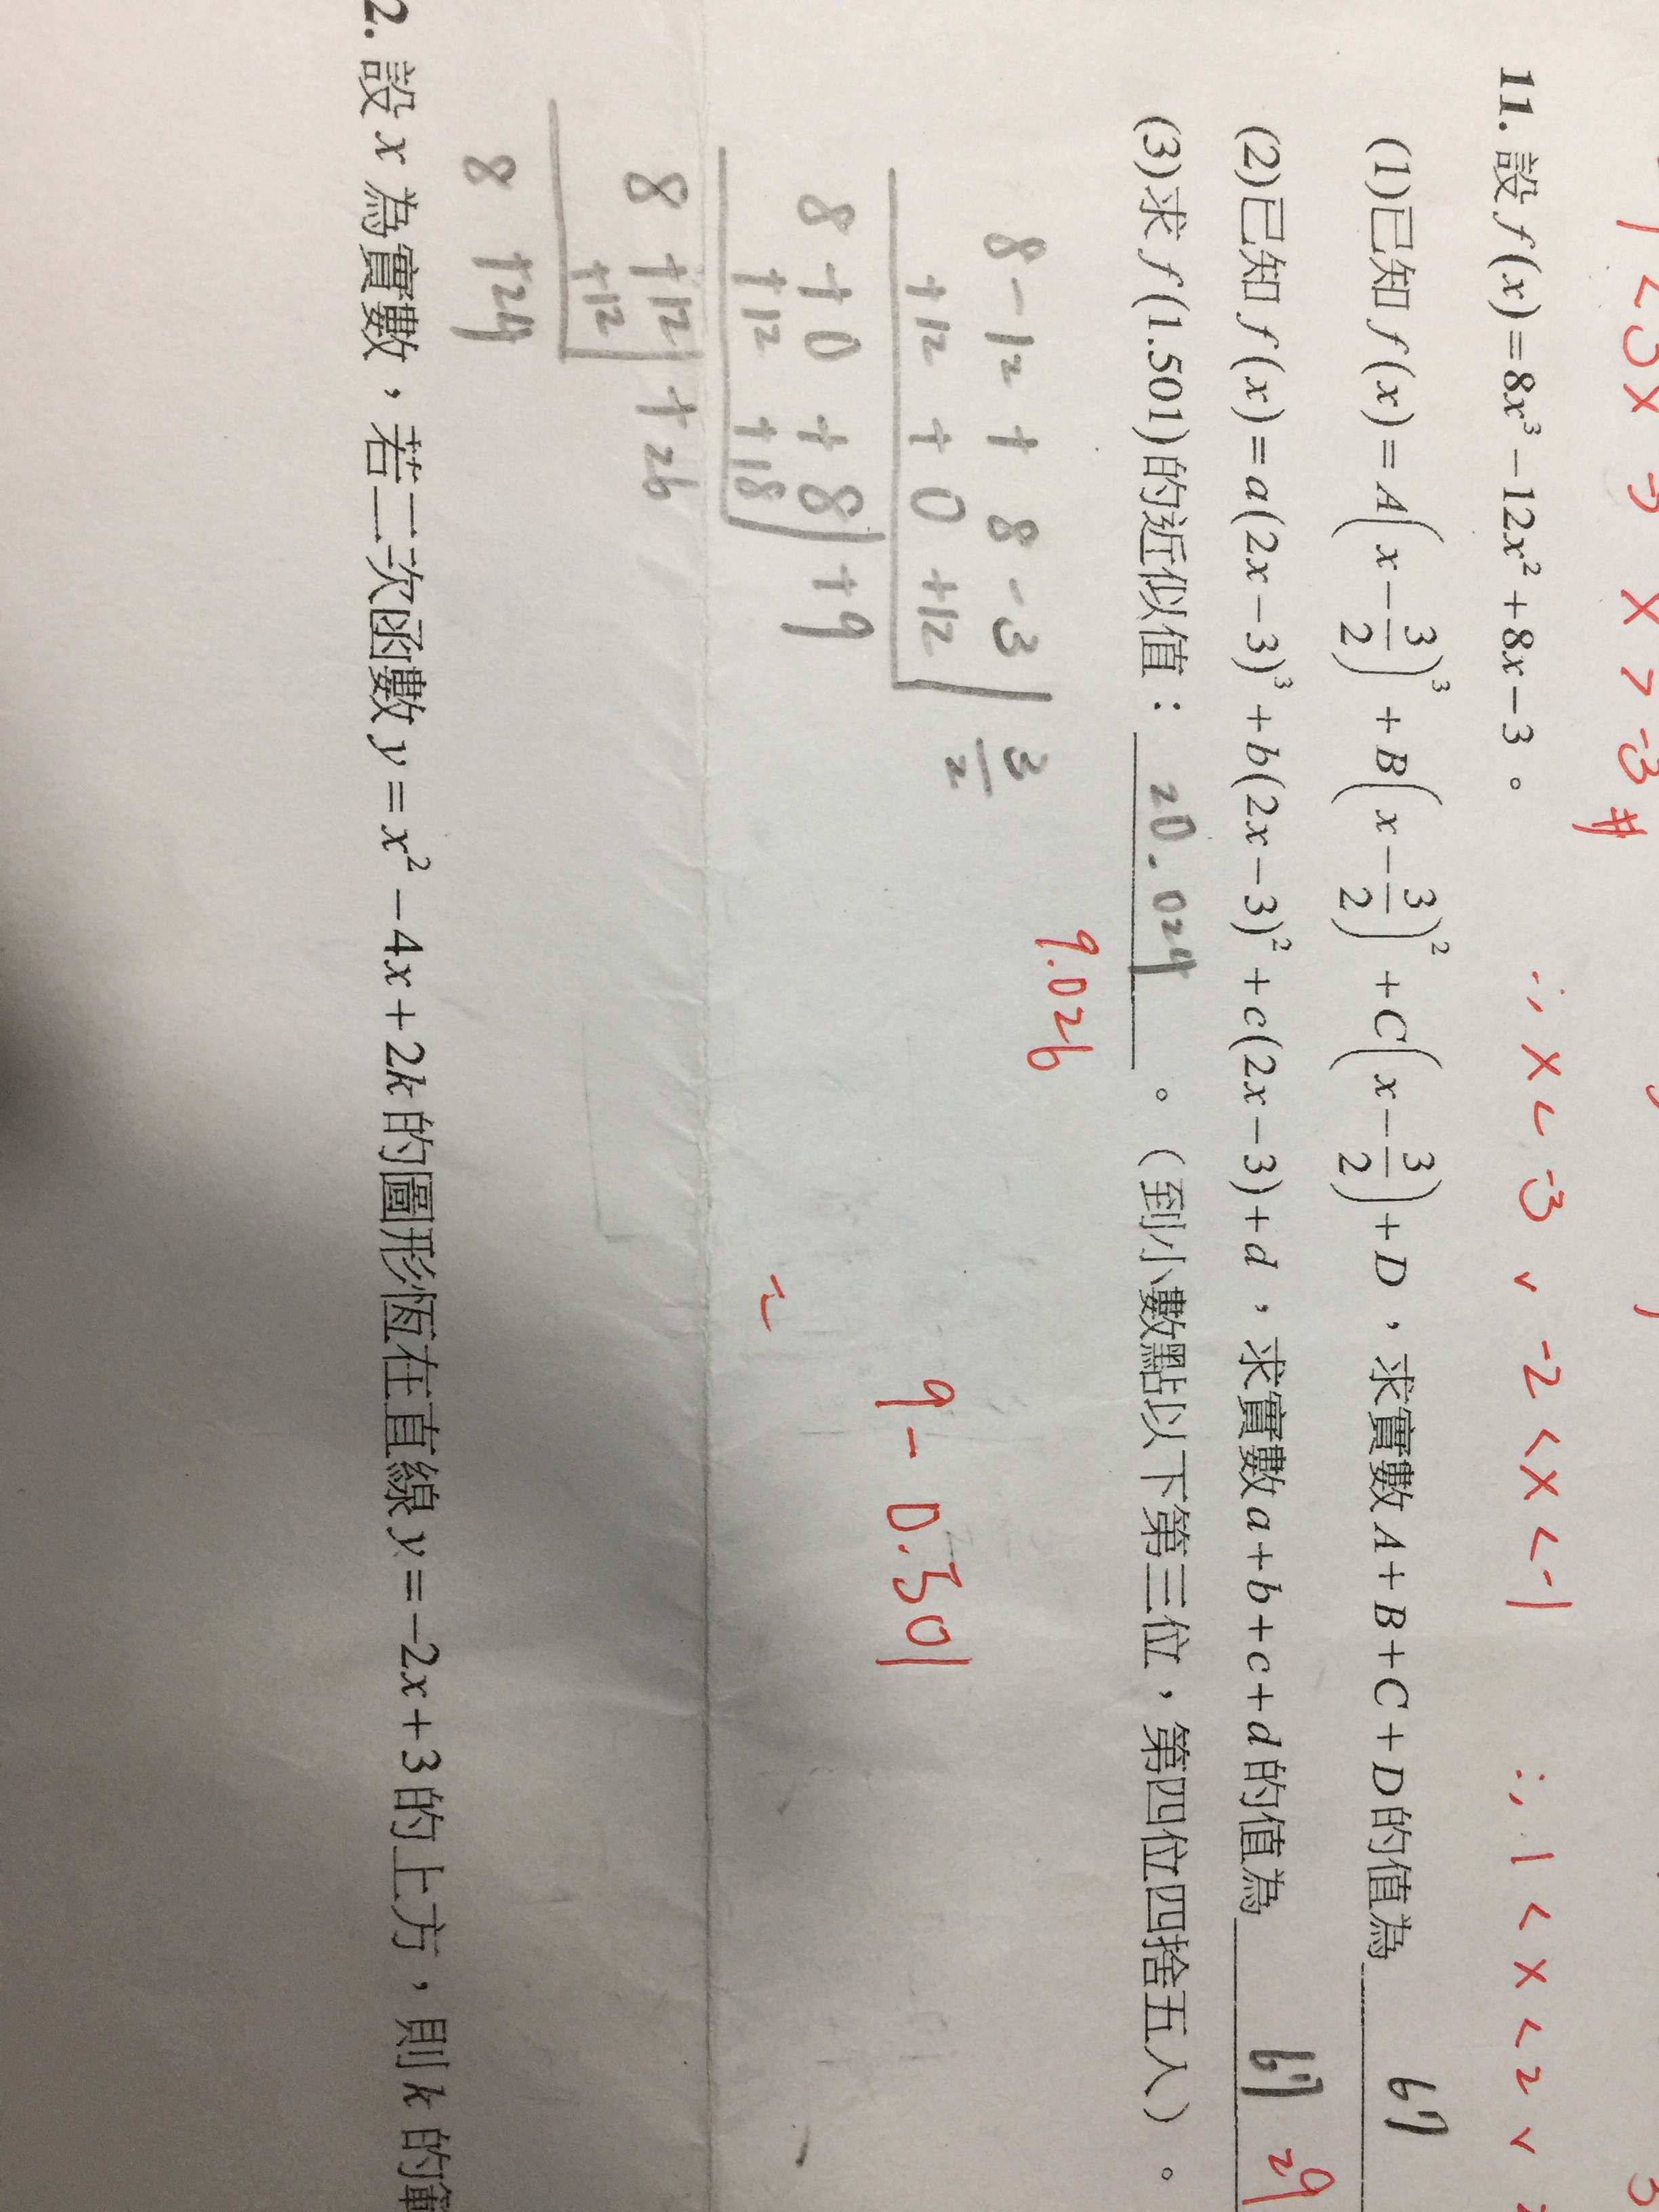 ∴ x < -3 ∨ -2 < x < -1
∴ 1 < x < 2 ∨
11. 設 f(x)=8x³-12x²+8x-3。
(1)已知 f(x)=A(x-3/2)³+B(x-3/2)²+C(x-3/2)+D，求實數 A+B+C+D 的值為 67
(2)已知 f(x)=a(2x-3)³+b(2x-3)²+c(2x-3)+d，求實數 a+b+c+d 的值為 67 29
(3)求 f(1.501)的近似值： 20.024 。（到小數點以下第三位，第四位四捨五入）。
9.026
8 -12 + 8 -3 | 3/2
+12 + 0 +12
8 + 0 + 8 | +9
+12 +18
8 +12 | +26
+12
8 +24
9 - 0.501
2. 設 x 為實數，若二次函數 y=x²-4x+2k 的圖形恆在直線 y=-2x+3 的上方，則 k 的